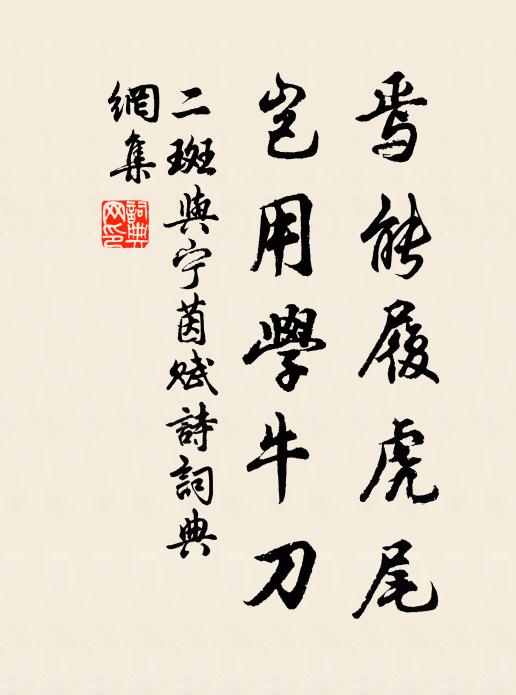 焉能履虎尾
豈用學牛刀
二斑與宁茵賦詩詞典
網集
詞典網印